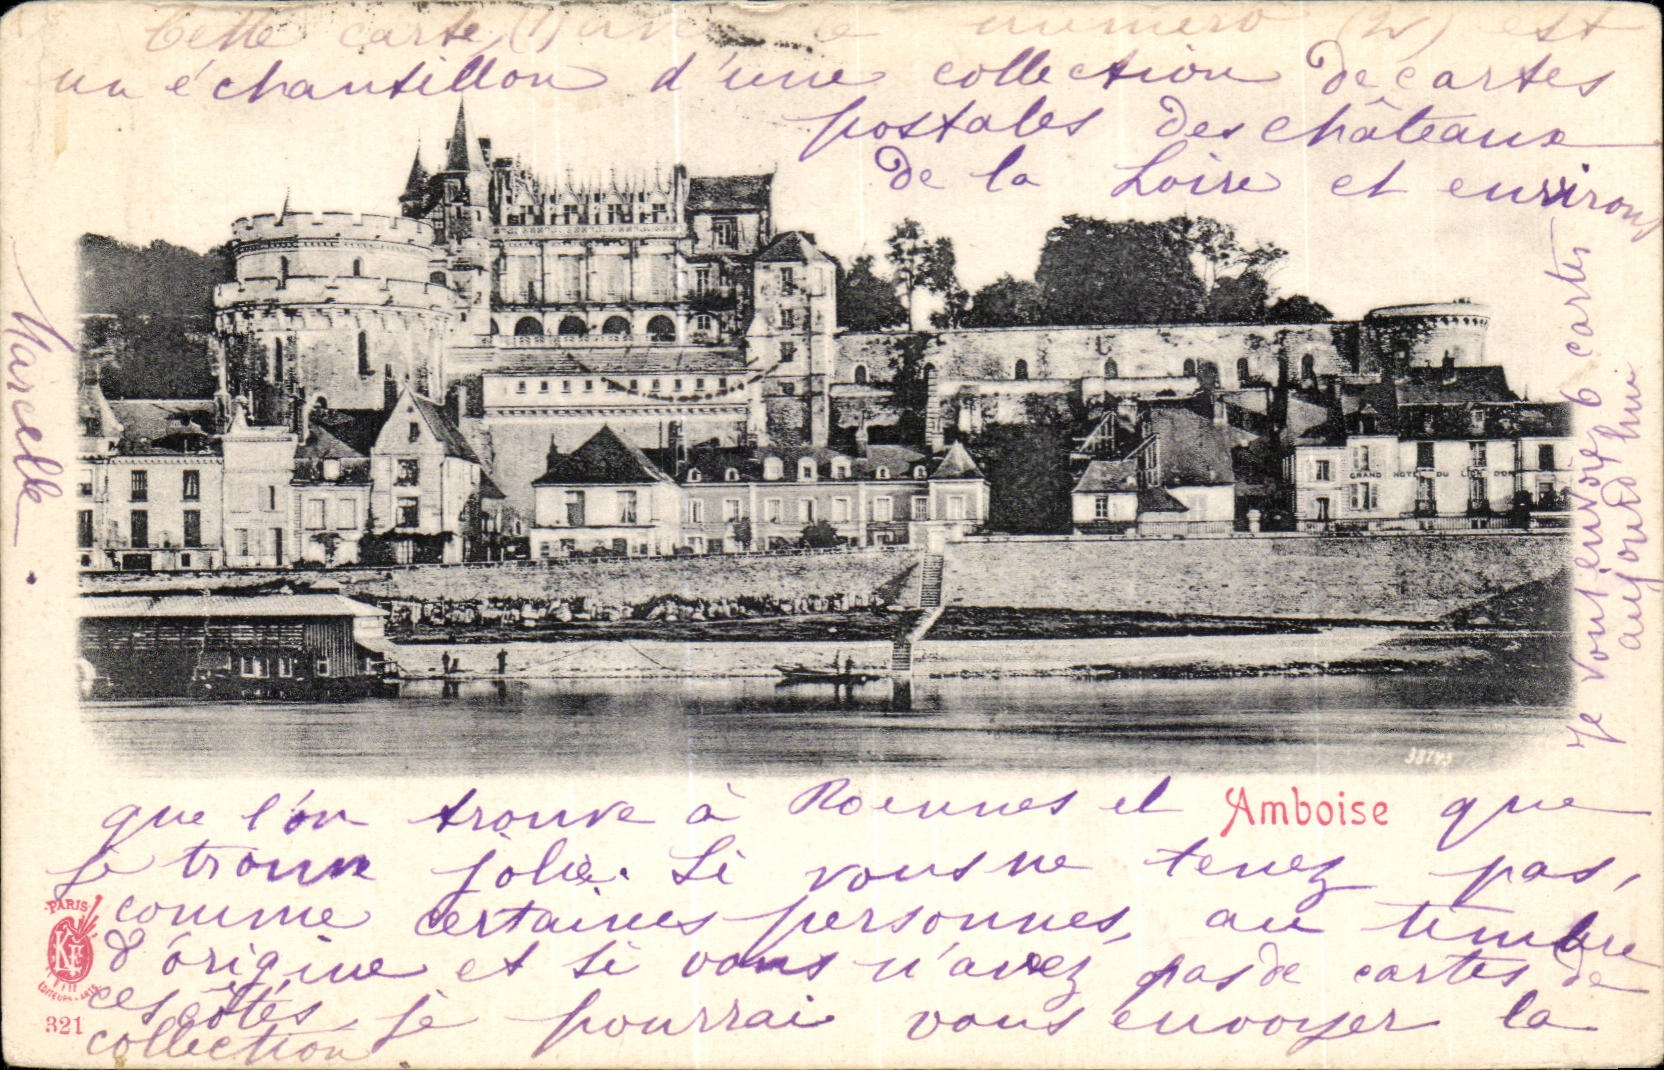 Cette carte (1) avec le numero (2) est
un échantillon d'une collection de cartes
postales des châteaux
de la Loire et environs
que l'on trouve à Rennes et que
je trouve jolie. Si vous ne tenez pas,
comme certaines personnes, au timbre
d'origine et si vous n'avez pas de cartes de
ces côtés, je pourrai vous envoyer la
collection
Marcelle.
Je vous envoie 6 cartes
aujourd'hui
GRAND HOTEL DU LION D'OR
38743
Amboise
PARIS
KF
EDITEURS-ARTS
321